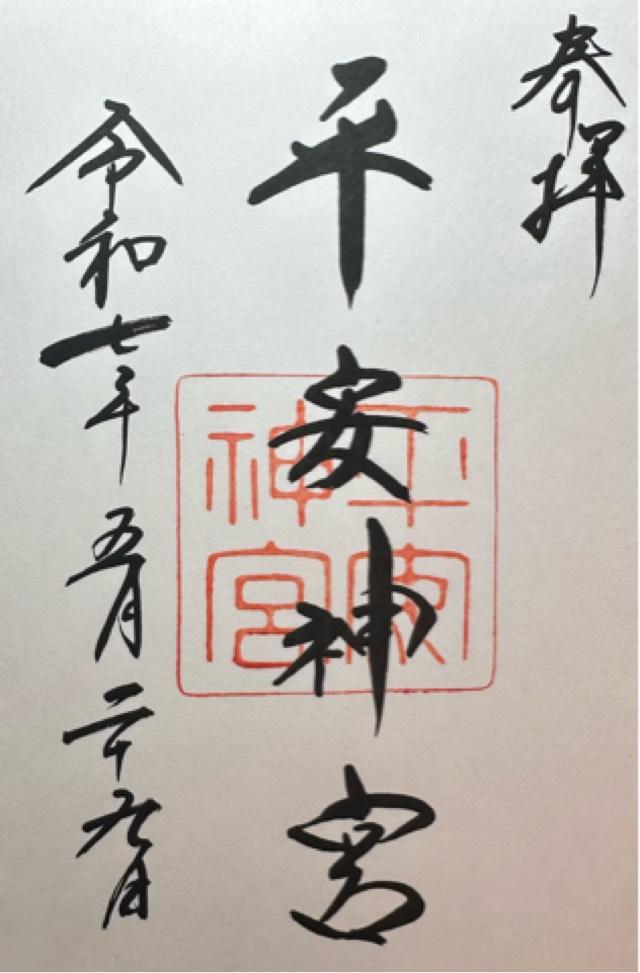 奉拝
平安神宮
平安神宮
令和七年五月二十九日